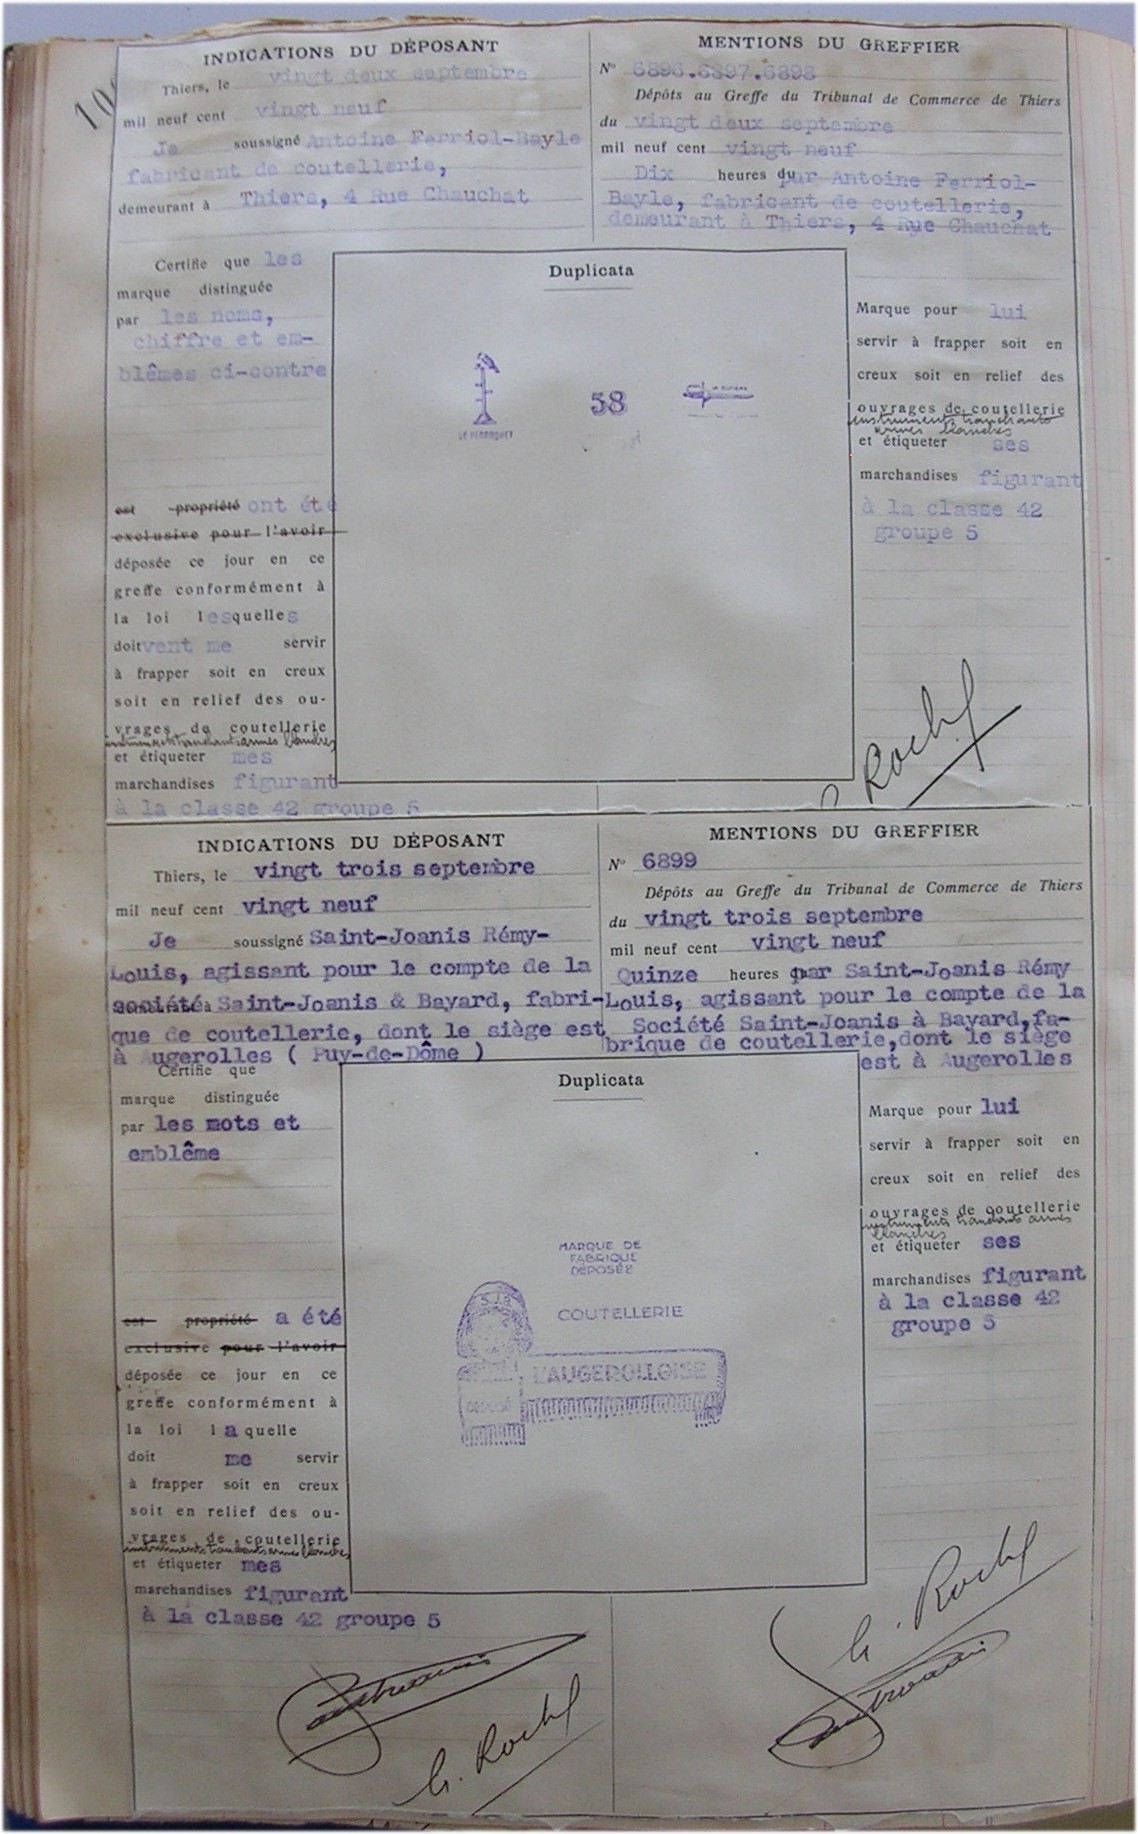 INDICATIONS DU DÉPOSANT
Thiers, le vingt deux septembre
mil neuf cent vingt neuf
Je soussigné Antoine Ferriol-Bayle
fabricant de coutellerie,
demeurant à Thiers, 4 Rue Chauchat
MENTIONS DU GREFFIER
N° 6896.6897.6898
Dépôts au Greffe du Tribunal de Commerce de Thiers
du vingt deux septembre
mil neuf cent vingt neuf
Dix heures du par Antoine Ferriol-
Bayle, fabricant de coutellerie,
demeurant à Thiers, 4 Rue Chauchat
Certifie que les
marque distinguée
par les noms,
chiffre et em-
blêmes ci-contre
est propriété ont été
exclusive pour l'avoir
déposée ce jour en ce
greffe conformément à
la loi lesquelles
doivent me servir
à frapper soit en creux
soit en relief des ou-
vrages de coutellerie
instruments tranchants armes blanches
et étiqueter mes
marchandises figurant
à la classe 42 groupe 5
Duplicata
LE PERROQUET
58
Marque pour lui
servir à frapper soit en
creux soit en relief des
ouvrages de coutellerie
instruments tranchants
armes blanches
et étiqueter ses
marchandises figurant
à la classe 42
groupe 5
INDICATIONS DU DÉPOSANT
Thiers, le vingt trois septembre
mil neuf cent vingt neuf
Je soussigné Saint-Joanis Rémy-
Louis, agissant pour le compte de la
société Saint-Joanis & Bayard, fabri-
que de coutellerie, dont le siège est
à Augerolles ( Puy-de-Dôme )
MENTIONS DU GREFFIER
N° 6899
Dépôts au Greffe du Tribunal de Commerce de Thiers
du vingt trois septembre
mil neuf cent vingt neuf
Quinze heures par Saint-Joanis Rémy
Louis, agissant pour le compte de la
Société Saint-Joanis à Bayard, fa-
brique de coutellerie, dont le siège
est à Augerolles
Certifie que
marque distinguée
par les mots et
emblême
est propriété a été
exclusive pour l'avoir
déposée ce jour en ce
greffe conformément à
la loi laquelle
doit me servir
à frapper soit en creux
soit en relief des ou-
vrages de coutellerie
instruments tranchants armes blanches
et étiqueter mes
marchandises figurant
à la classe 42 groupe 5
Duplicata
MARQUE DE
FABRIQUE
DÉPOSÉE
COUTELLERIE
L'AUGEROLLOISE
Marque pour lui
servir à frapper soit en
creux soit en relief des
ouvrages de coutellerie
instruments tranchants armes
blanches
et étiqueter ses
marchandises figurant
à la classe 42
groupe 5